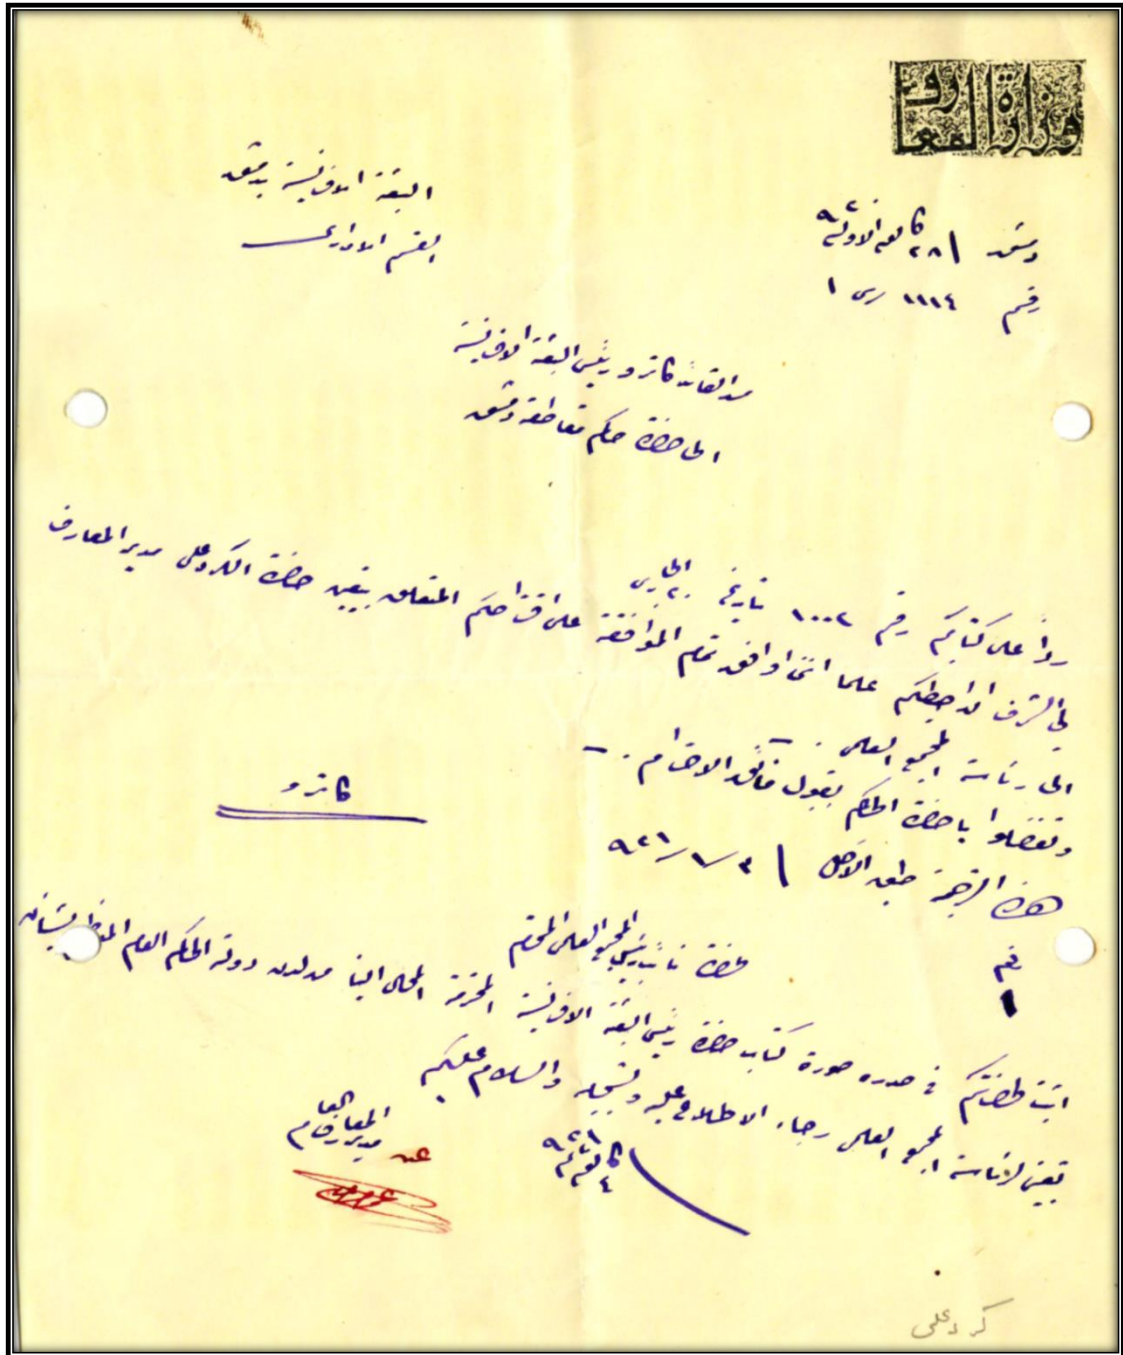 وزارة المعارف
البعثة الافرنسية بدمشق
القسم الاداري
دمشق ٢٨ كانون الاول ٩٢٠
رقم ١١١٤ رس ١
من القائد كاترو رئيس البعثة الافرنسية
الى حضرة حاكم مقاطعة دمشق
رداً على كتابكم رقم ١٠٠٢ تاريخ ٢٠ الجاري
لي الشرف ان احيطكم علما انني اوافق تمام الموافقة على اقتراحكم المتعلق بتعيين حضرة الكرد علي مدير المعارف
الى رئاسة المجمع العلمي .–
وتفضلوا يا حضرة الحاكم بقبول فائق الاحترام .–
كاترو
هذه الترجمة طبق الاصل ٣/١/٩٢١
رقم
١
حضرة نائب رئيس المجمع العلمي المحترم
اثبتنا لحضرتكم في صدره صورة كتاب حضرة رئيس البعثة الافرنسية المحترمة المحال الينا من لدن دولة الحاكم العام بشأن
تعيين لرئاسة المجمع العلمي رجاء الاطلاع عليه وتسجيله والسلام عليكم .
٤ كانون ٢ ٩٢١
عن مدير المعارف العام
كرد علي